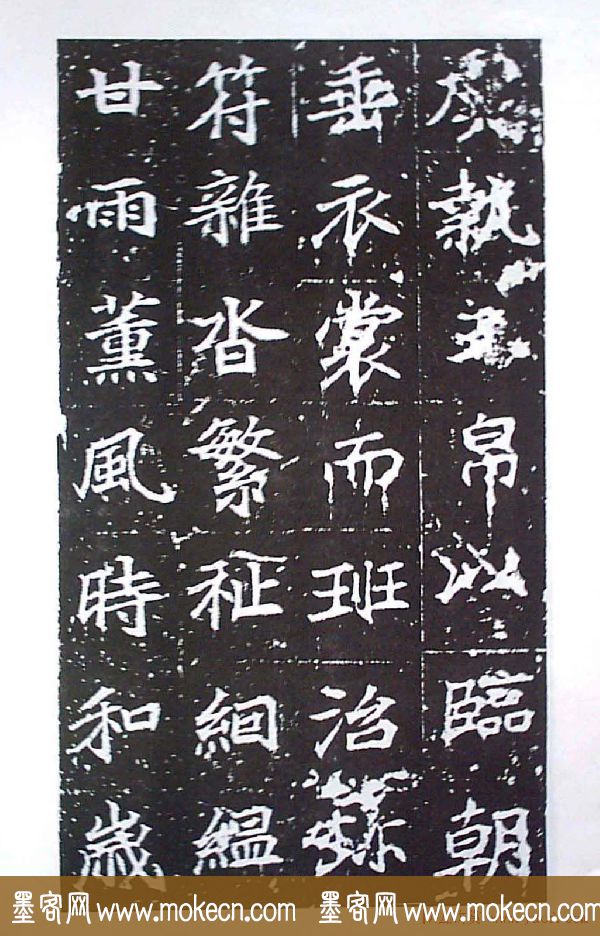 執玉帛以臨朝
垂衣裳而班治
符雜沓繁祉絪縕
甘雨薰風時和歲
墨客网 www.mokecn.com 墨客网 www.mokecn.com